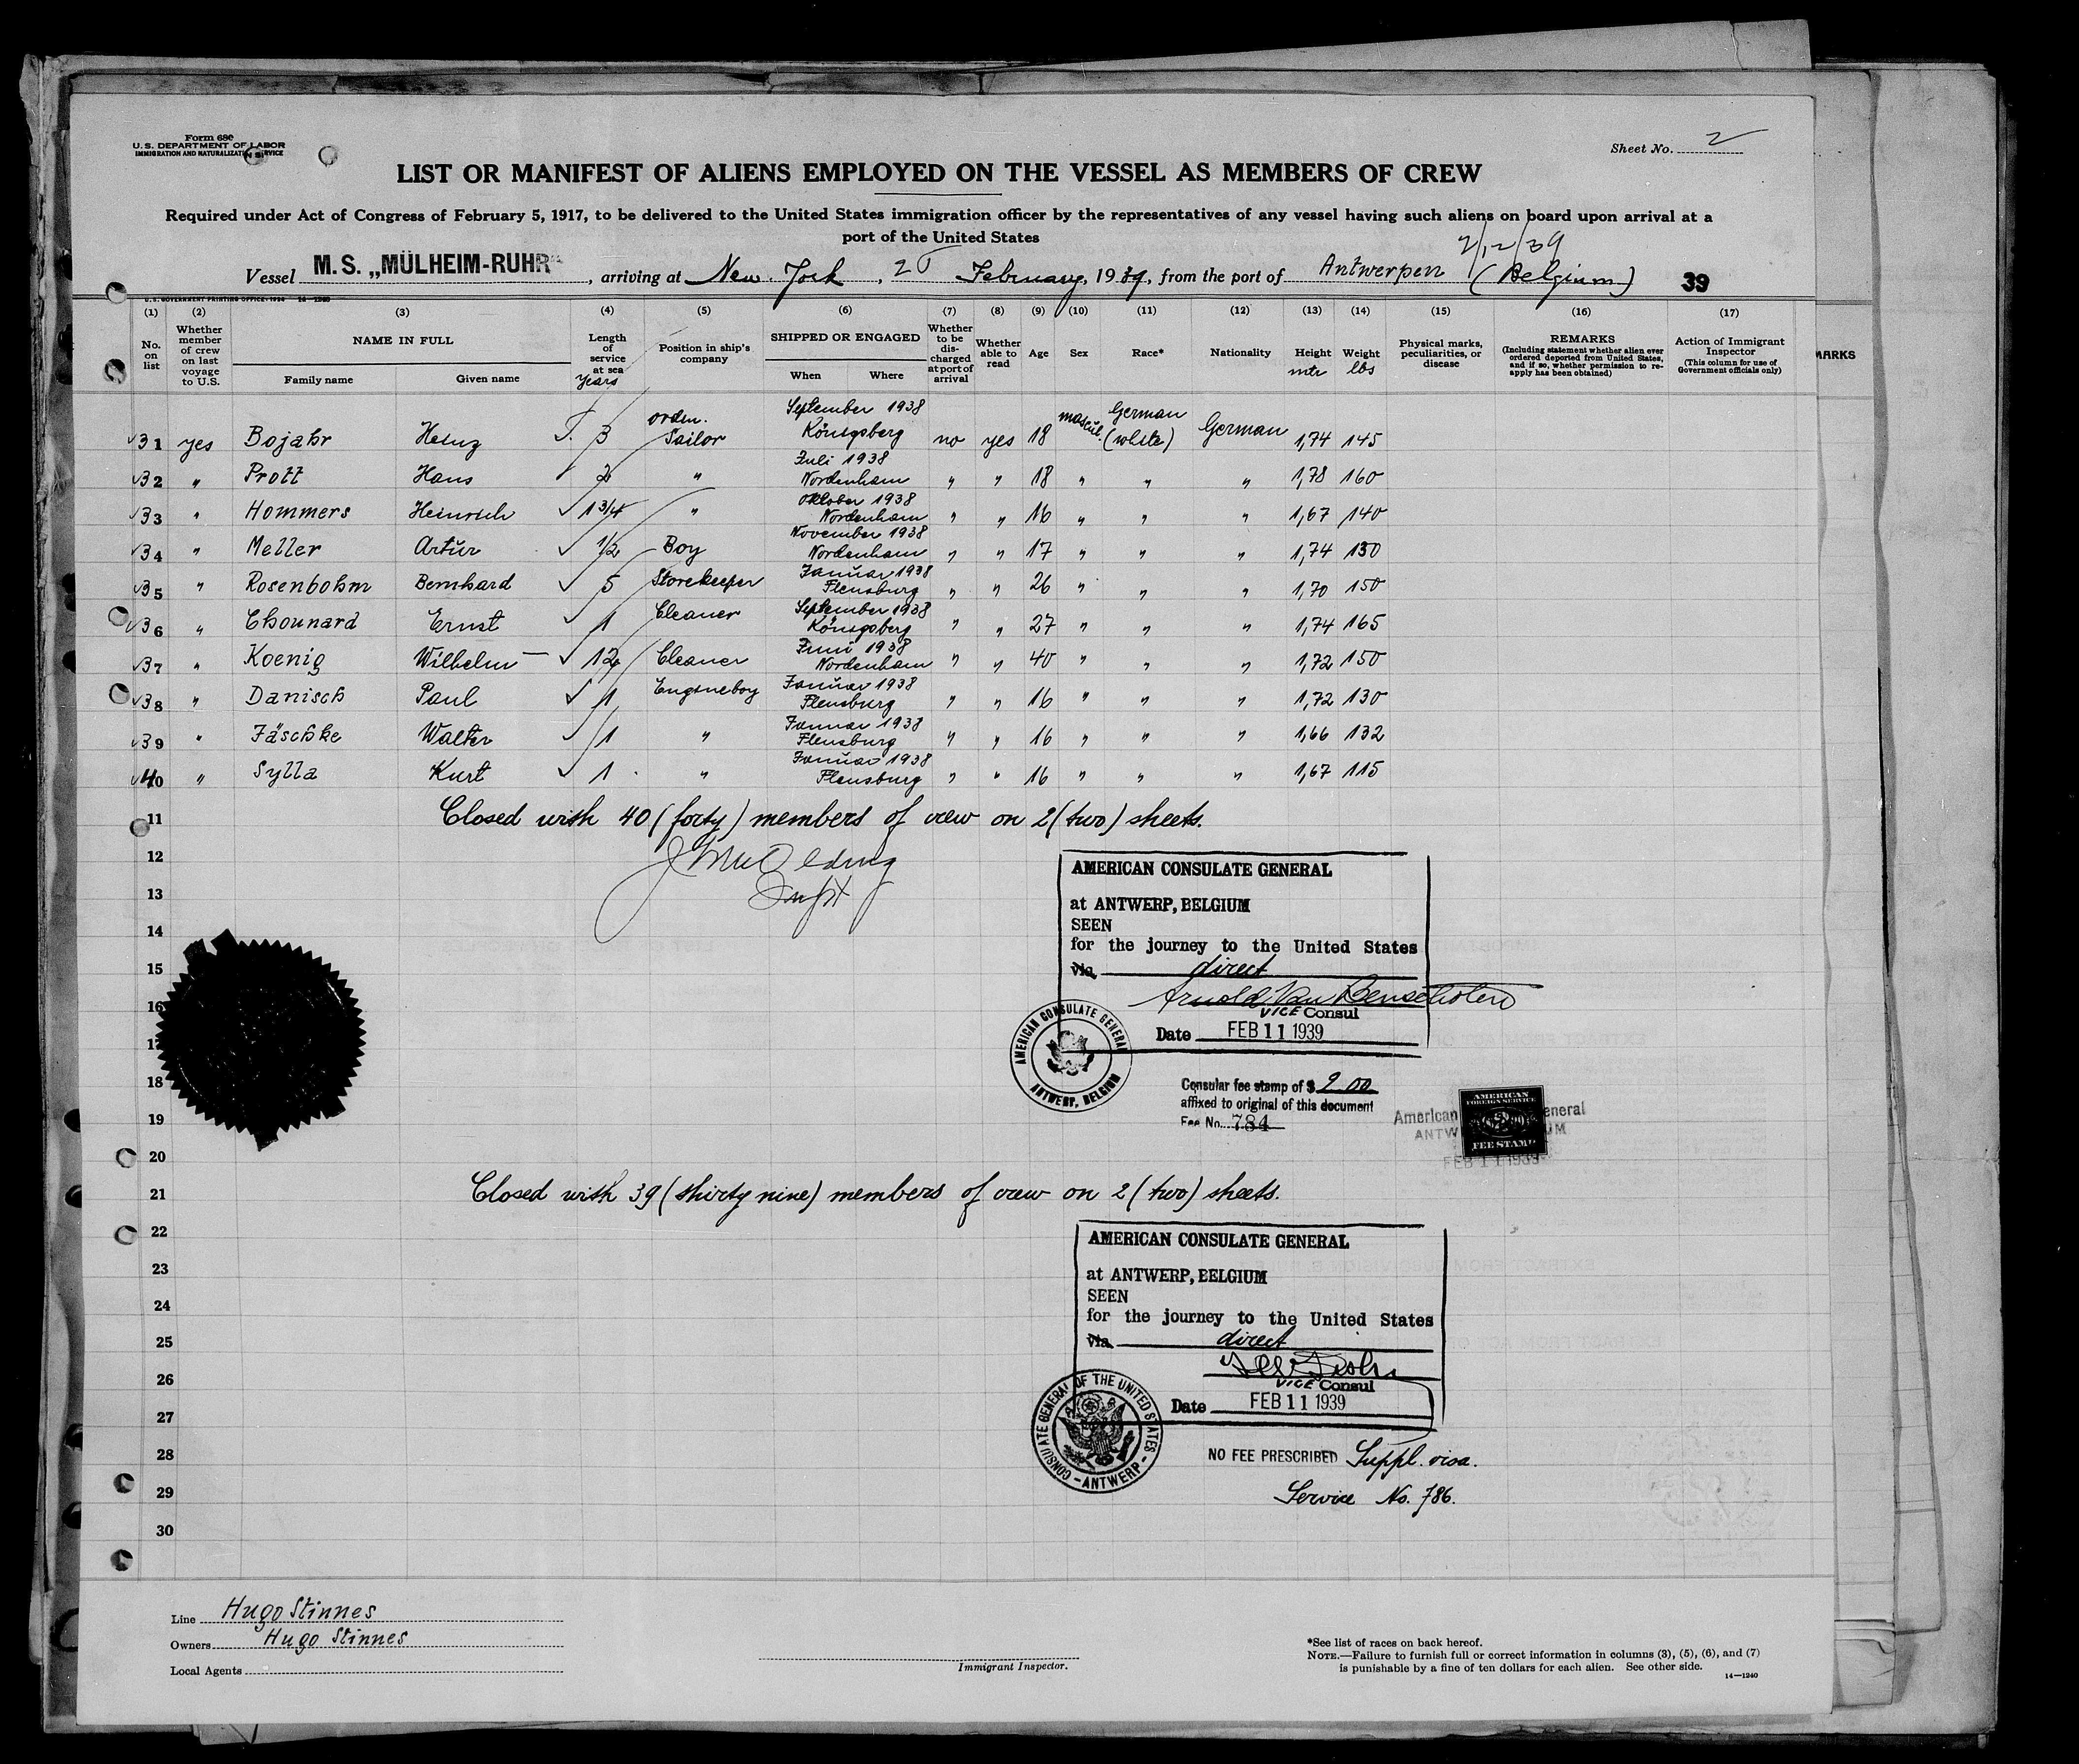 Form 680
U.S. DEPARTMENT OF LABOR
IMMIGRATION AND NATURALIZATION SERVICE
Sheet No. 2
LIST OR MANIFEST OF ALIENS EMPLOYED ON THE VESSEL AS MEMBERS OF CREW
Required under Act of Congress of February 5, 1917, to be delivered to the United States immigration officer by the representatives of any vessel having such aliens on board upon arrival at a
port of the United States
2/12/39
Vessel M. S. „MÜLHEIM-RUHR“, arriving at New York, February, 1939, from the port of Antwerpen (Belgium) 39
U.S. GOVERNMENT PRINTING OFFICE: 14-1240
(1) (2) (3) (4) (5) (6) (7) (8) (9) (10) (11) (12) (13) (14) (15) (16) (17)
No. on list
Whether member of crew on last voyage to U.S.
NAME IN FULL
Family name Given name
Length of service at sea years
Position in ship's company
SHIPPED OR ENGAGED
When Where
Whether to be discharged at port of arrival
Whether able to read
Age
Sex
Race*
Nationality
Height mtr
Weight lbs
Physical marks, peculiarities, or disease
REMARKS
(Including statement whether alien ever ordered deported from United States, and if so, whether permission to re-apply has been obtained)
Action of Immigrant Inspector
(This column for use of Government officials only)
MARKS
31 yes Bojahr Heinz 3 ordin. Sailor September 1938 Königsberg no yes 18 mascul. German (white) German 1,74 145
32 " Prott Hans 2 " Juli 1938 Nordenham " " 18 " " " 1,78 160
33 " Hommers Heinrich 1 3/4 " Oktober 1938 Nordenham " " 16 " " " 1,67 140
34 " Meller Artur 1/2 Boy November 1938 Nordenham " " 17 " " " 1,74 130
35 " Rosenbohm Bernhard 5 Storekeeper Januar 1938 Flensburg " " 26 " " " 1,70 150
36 " Chounard Ernst 1 Cleaner September 1938 Königsberg " " 27 " " " 1,74 165
37 " Koenig Wilhelm 12 Cleaner Juni 1938 Nordenham " " 40 " " " 1,72 150
38 " Danisch Paul 1 Engineboy Januar 1938 Flensburg " " 16 " " " 1,72 130
39 " Jäschke Walter 1 " Januar 1938 Flensburg " " 16 " " " 1,66 132
40 " Sylla Kurt 1 " Januar 1938 Flensburg " " 16 " " " 1,67 115
11 Closed with 40 (forty) members of crew on 2 (two) sheets.
12
13
14
15
16
17
18
19
20
AMERICAN CONSULATE GENERAL
at ANTWERP, BELGIUM
SEEN
for the journey to the United States
via direct
Arnold Van Benschoten
VICE Consul
Date FEB 11 1939
AMERICAN CONSULATE GENERAL
ANTWERP, BELGIUM
Consular fee stamp of $ 2.00
affixed to original of this document
Fee No. 784
AMERICAN
FOREIGN SERVICE
FEE STAMP
FEB 11 1939
21 Closed with 39 (thirty nine) members of crew on 2 (two) sheets.
22
23
24
25
26
27
28
29
30
AMERICAN CONSULATE GENERAL
at ANTWERP, BELGIUM
SEEN
for the journey to the United States
via direct
VICE Consul
Date FEB 11 1939
CONSULATE GENERAL OF THE UNITED STATES - ANTWERP -
NO FEE PRESCRIBED Suppl. visa.
Service No. 786.
Line Hugo Stinnes
Owners Hugo Stinnes
Local Agents
Immigrant Inspector.
*See list of races on back hereof.
NOTE.—Failure to furnish full or correct information in columns (3), (5), (6), and (7)
is punishable by a fine of ten dollars for each alien. See other side.
14—1240